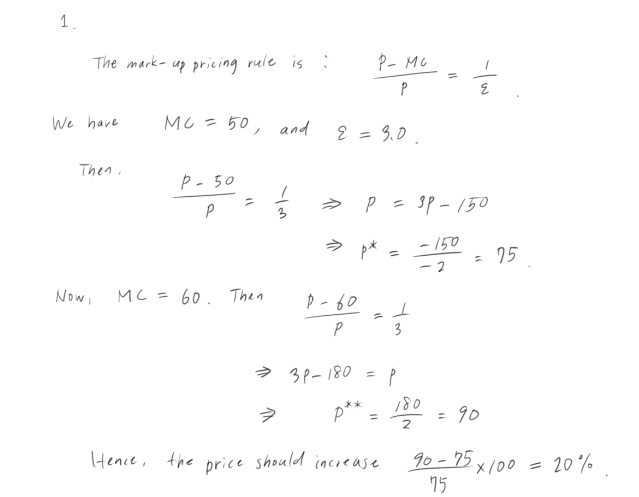 1.
The mark-up pricing rule is : (P - MC)/P = 1/ε.
We have MC = 50, and ε = 3.0.
Then, (P - 50)/P = 1/3 ⇒ P = 3P - 150
⇒ P* = -150/-2 = 75.
Now, MC = 60. Then (P - 60)/P = 1/3
⇒ 3P - 180 = P
⇒ P** = 180/2 = 90
Hence, the price should increase (90 - 75)/75 × 100 = 20%.